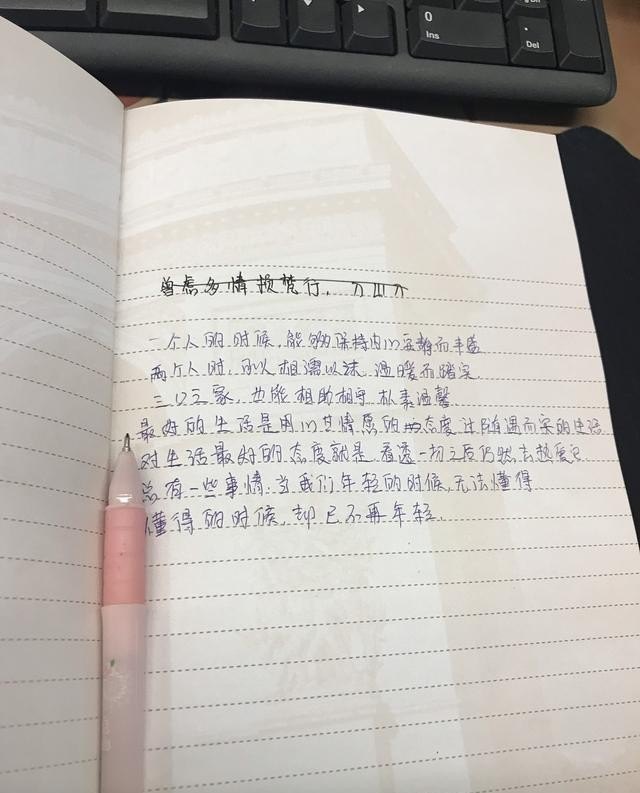 0
Ins
.
Del
曾虑多情损梵行,入山又
一个人的时候,能够保持内心安静而丰盛
两个人时,可以相濡以沫,温暖而踏实
三口之家,也能相助相守,朴素温馨
最好的生活是用心甘情愿的态度,过随遇而安的生活
对生活最好的态度就是,看透一切之后仍然去热爱它
总有一些事情,当我们年轻的时候,无法懂得
懂得的时候,却已不再年轻.